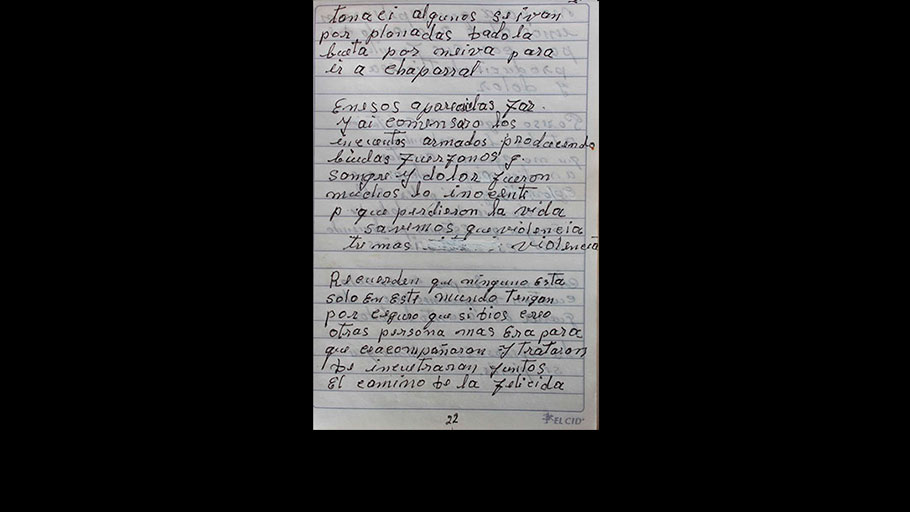 tonaci algunos se ivan
por plonadas dadola
bueta por neiva para
ir a chaparral
Enesos aparecidas far.
Y ai comensaro los
incuentos armados produciendo
biudas zuerfanos y.
Sangre y dolor fueron
muchos lo inocente
p que perdieron la vida
savemos que violencia
tu mas violencia
Recuerden que ninguno esta
solo En Este mundo Tengan
por ceguro que si dios creo
otras persona mas Era para
que ceacompañaron y trataron
De incuetraran juntos
El camino De la felicida
22
EL CID